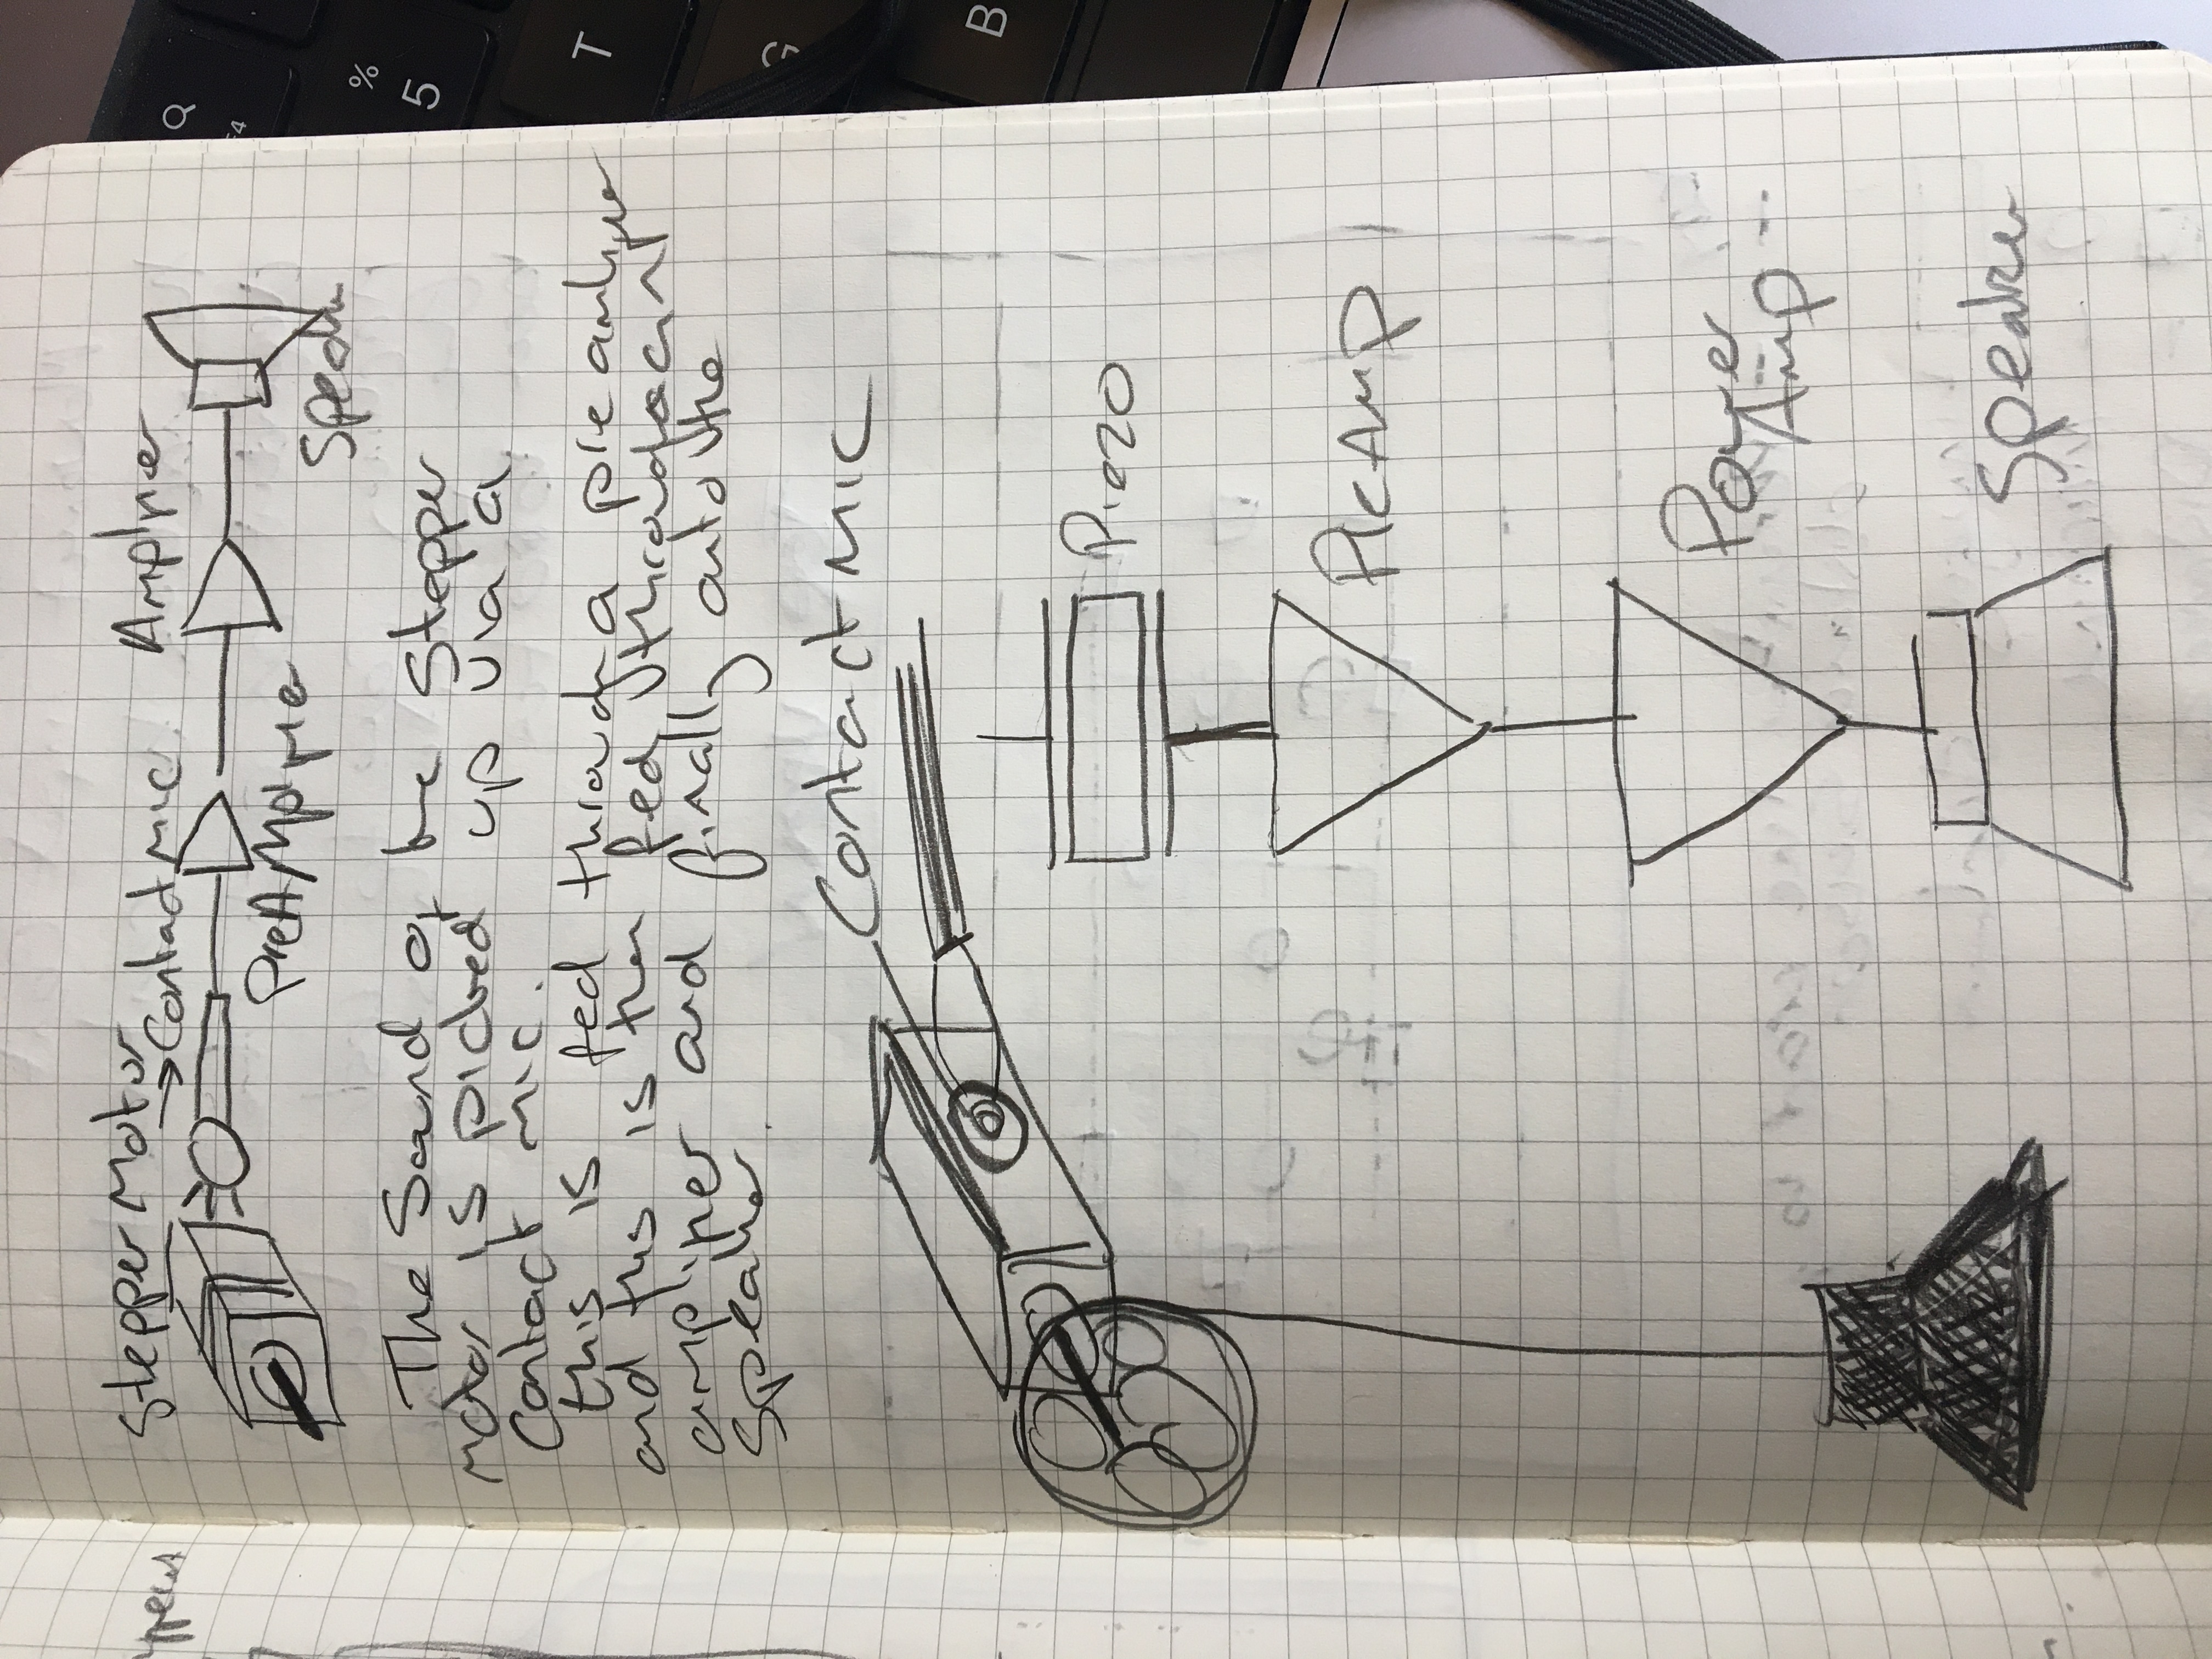 Stepper Motor
→ Contact Mic
Amplifier
PreAmplifier
Speaker
The Sound of the Stepper
motor is picked up via a
Contact mic.
this is fed through a preamlifier
and this is then fed through an
amplifier and finally onto the
Speaker.
Contact Mic
Piezo
PreAmp
Power
Amp
Speaker
F4
%
5
T
G
B